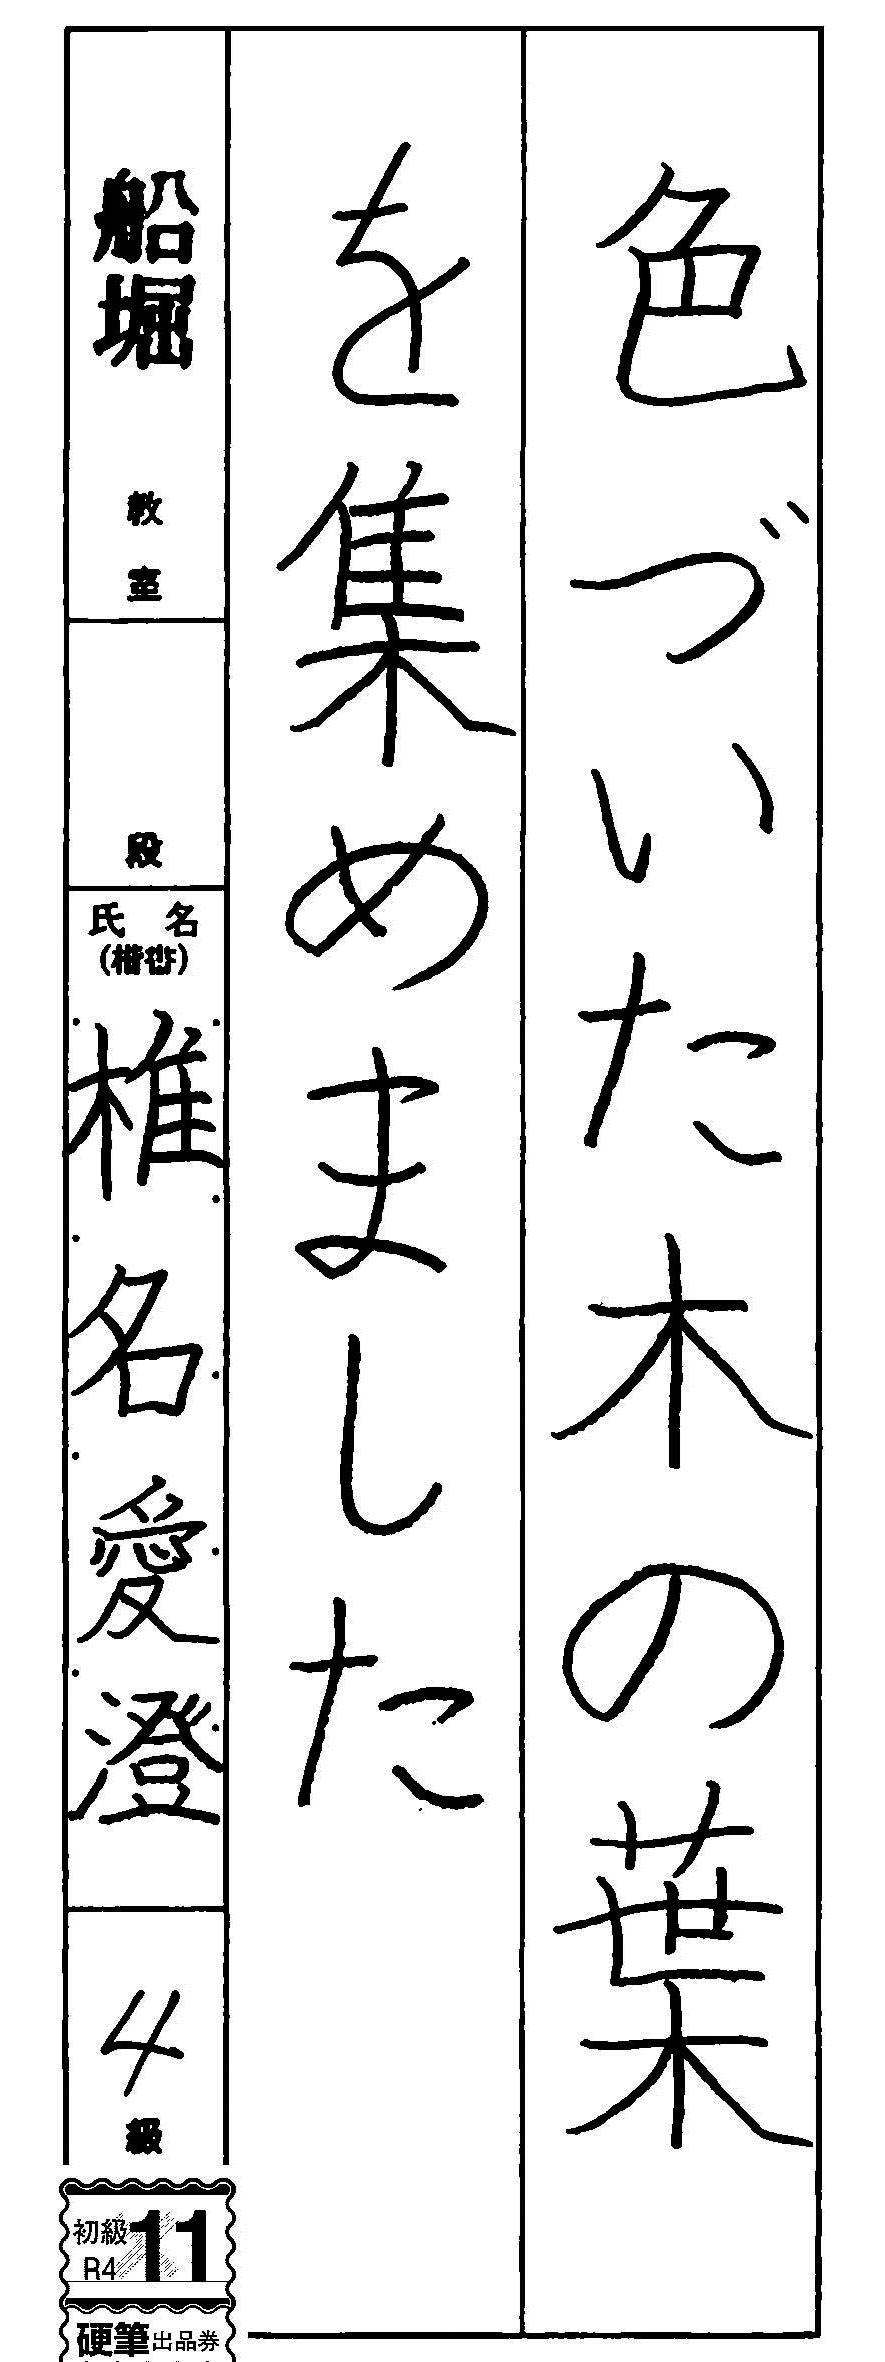 色づいた木の葉
を集めました
船堀教室
段
氏名
(楷書)
椎名愛澄
4級
初級
R4
11
硬筆出品券